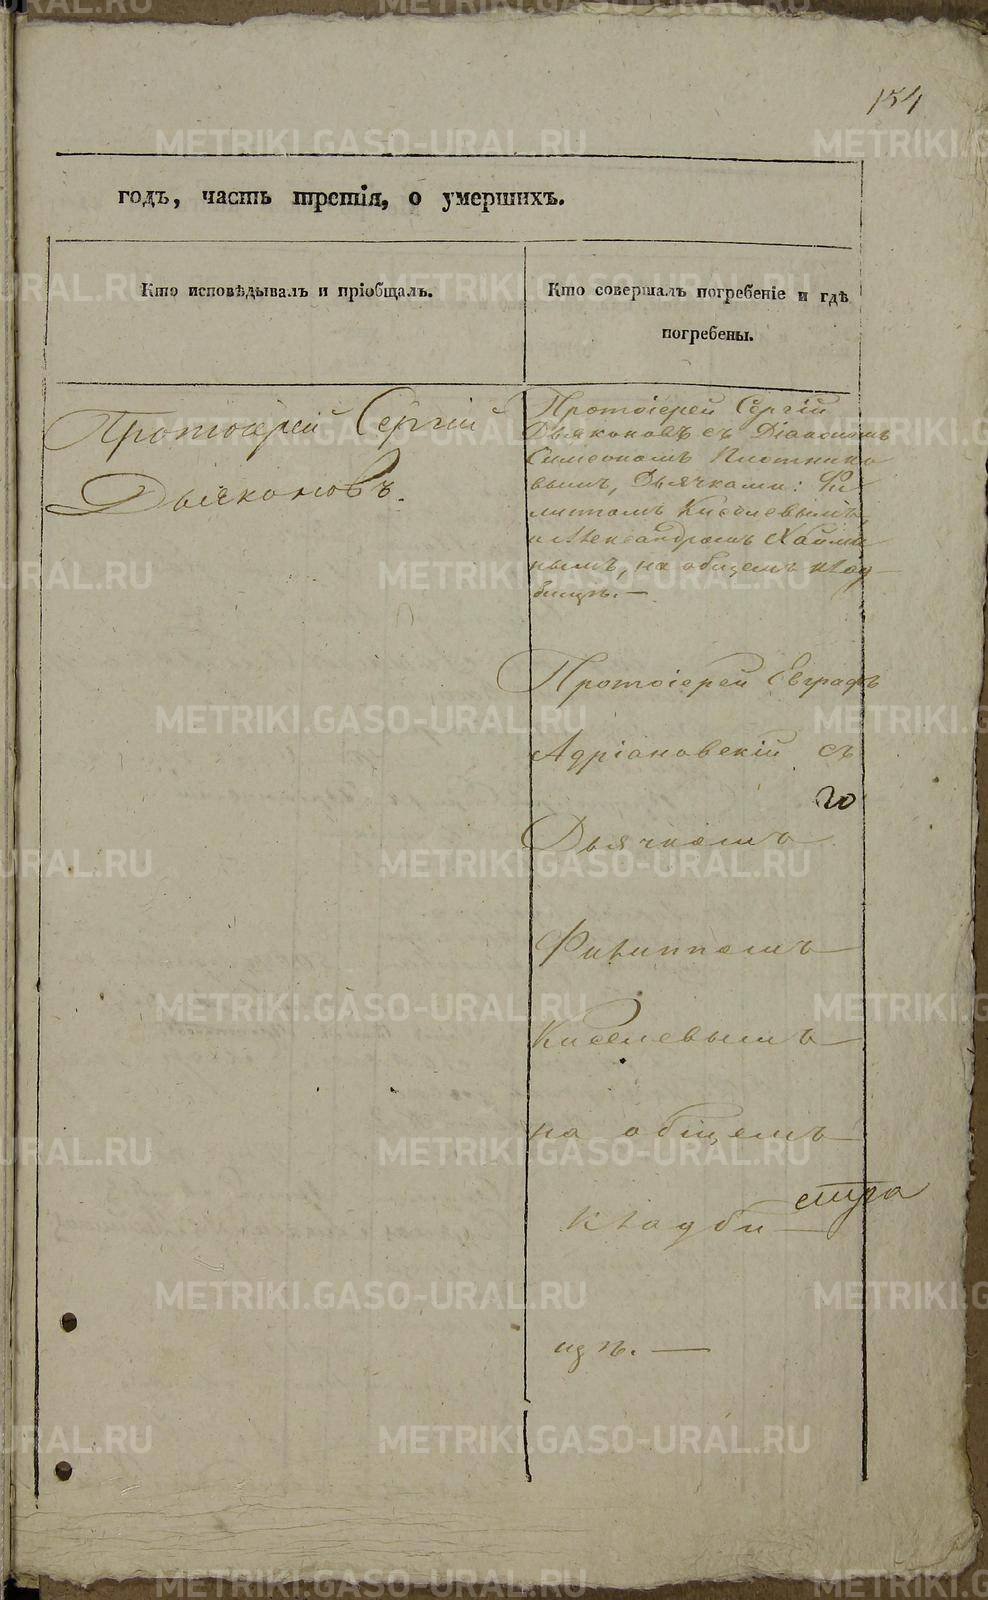 154
годъ, часть третія, о умершихъ.
Кто исповѣдывалъ и пріобщалъ.
Кто совершалъ погребеніе и гдѣ
погребены.
Протоіерей Сергій
Дьяконовъ.
Протоіерей Сергій
Дьяконовъ съ Діакономъ
Симеономъ Плотнико
вымъ, Дьячками: Фи
липпомъ Киселевымъ
и Александромъ
нымъ, на общемъ клад
бищѣ. —
Протоіерей Евграфъ
Адріановскій съ
го
Дьячкомъ
Филиппомъ
Киселевымъ
на общемъ
кладби
щѣ. —
METRIKI.GASO-URAL.RU